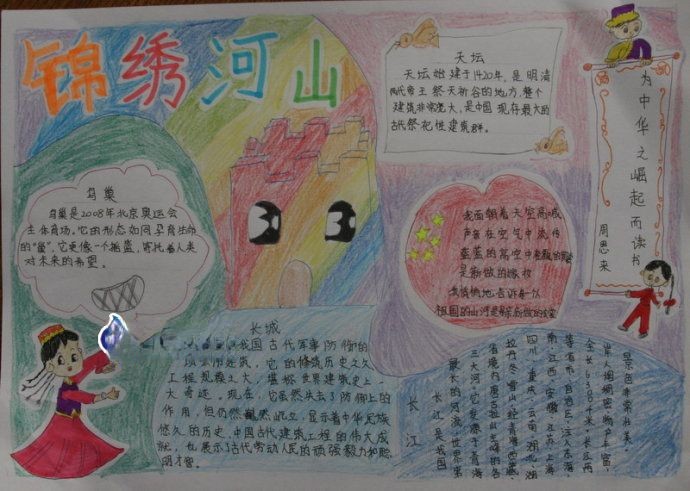 锦绣河山
天坛
天坛始建于1420年,是明清
两代帝王祭天祈谷的地方,整个
建筑非常宏大,是中国现存最大的
古代祭祀性建筑群。
为中华之崛起而读书
周恩来
鸟巢
鸟巢是2008年北京奥运会
主体育场。它的形态如同孕育生命
的"巢",它更像一个摇篮,寄托着人类
对未来的希望。
我面朝着天空高喊
声音在空气中流传
蓝蓝的高空中
是新做的嫁妆
我悄悄地告诉每个人
祖国的山河是
长城
我国古代军事防御的
建筑,它的修筑历史之久
工程规模之大,堪称世界建筑史上一
大奇迹。现在,它虽然失去了防御上的
作用,但仍然巍然屹立,显示着中华民族
悠久的历史,中国古代建筑工程的伟大成
就,也展示了古代劳动人民的顽强毅力和聪
明才智。
长江
长江是我国
最长的河流,世界第
三大河,它发源于青海
省境内唐古拉山主峰的各
拉丹冬雪山,经青海、西藏、
四川、重庆、云南、湖北、湖
南、江西、安徽、江苏、上海
等省市自治区,注入东海,
全长6380千米,长江两
岸人口稠密,物产丰富,
景色非常壮美。